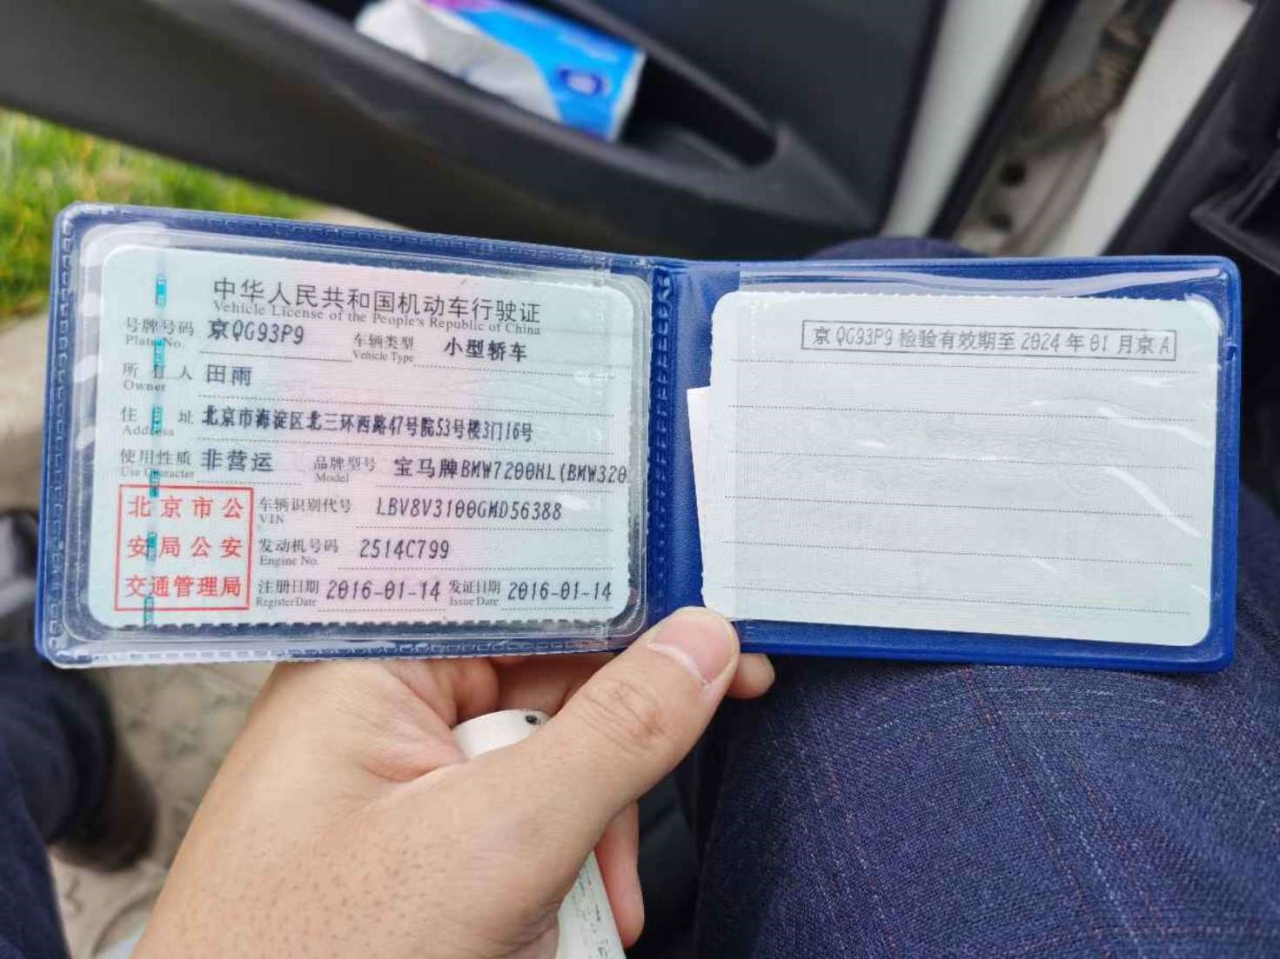 中华人民共和国机动车行驶证
Vehicle License of the People's Republic of China
号牌号码 京QG93P9 车辆类型 小型轿车
Plate No. Vehicle Type
所有人 田雨
Owner
住址 北京市海淀区北三环西路47号院53号楼3门16号
Address
使用性质 非营运 品牌型号 宝马牌BMW7200HL(BMW320
Use Character Model
北京市公
安局公安
交通管理局
车辆识别代号 LBV8V3100GMD56388
VIN
发动机号码 2514C799
Engine No.
注册日期 2016-01-14 发证日期 2016-01-14
Register Date Issue Date
京QG93P9检验有效期至2024年01月京A